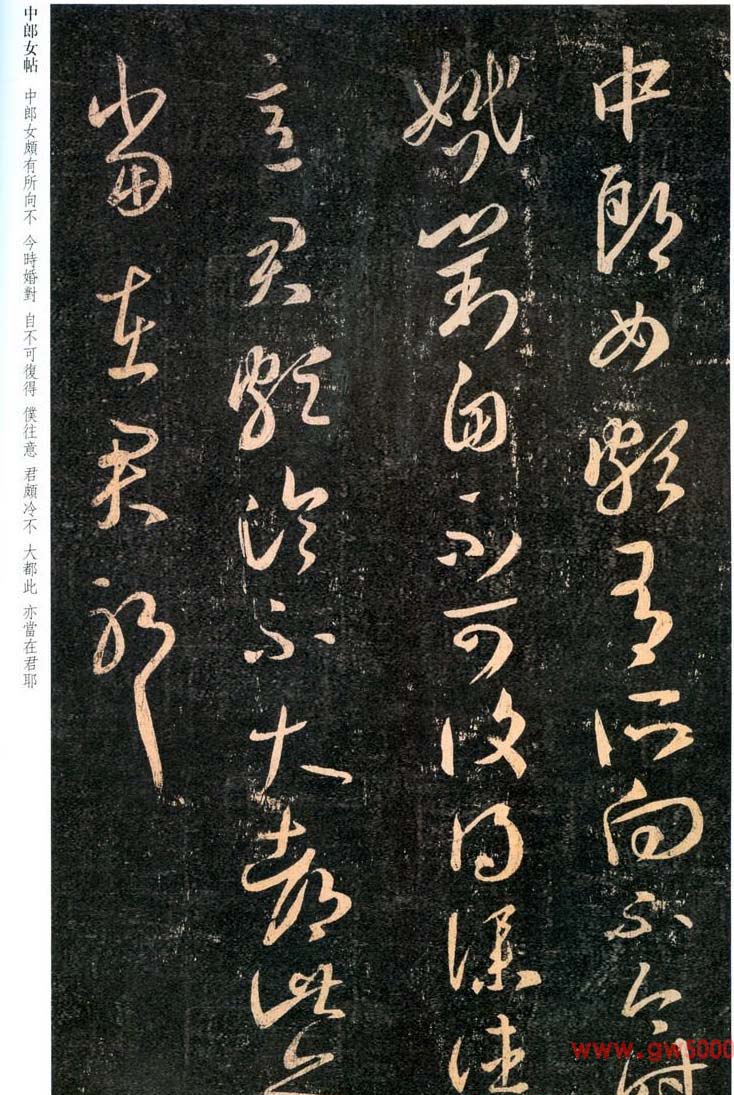 中郎女頗有所向不今時
婚對自不可復得僕往
意君頗冷不大都此亦
當在君耶
中郎女帖 中郎女頗有所向不 今時婚對 自不可復得 僕往意 君頗冷不 大都此 亦當在君耶
www.gw5000